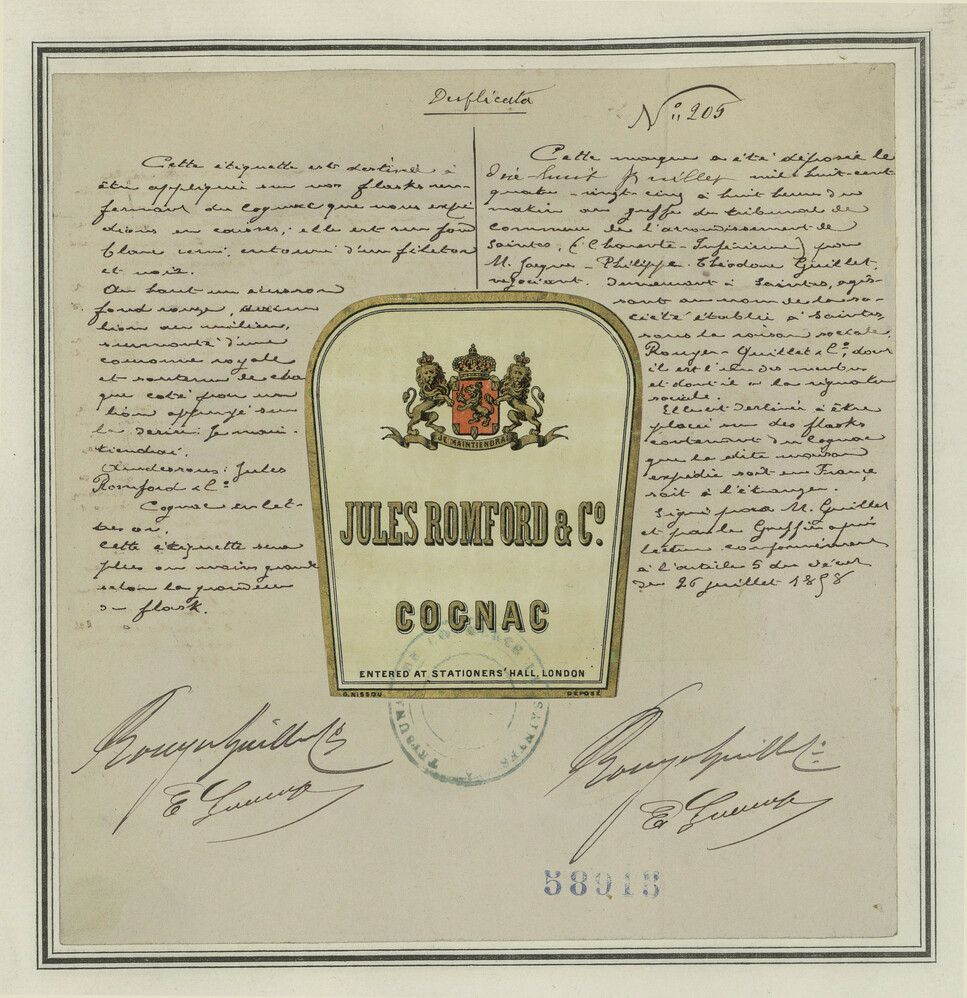 Duplicata
N° 205
Cette étiquette est destinée à
être appliquée sur nos flasks ren-
fermant du cognac que nous expé
dions en caisses; elle est sur fond
blanc verni, entouré d'un filet or
et noir.
Au haut un écusson
fond rouge, lion au milieu,
surmonté d'une
couronne royale
et soutenu de cha
que coté par un
lion appuyé sur
la devise: Je main-
tiendrai.
Au dessous: Jules
Romford & C°
Cognac en let-
tres or.
Cette étiquette sera
plus ou moins grande
selon la grandeur
du flask.
Cette marque a été déposée le
dix huit Juillet mil huit cent
quatre-vingt-cinq à huit heures du
matin au greffe du tribunal de
commerce de l'arrondissement de
Saintes, (Charente-Inférieure) par
M. Jacques-Philippe-Théodore Guillet,
négociant. demeurant à Saintes, agis-
sant au nom de la so-
ciété établie à Saintes,
sous la raison sociale,
Rouyer-Guillet & C°, dont
il est l'un des membres
et dont il a la signature
sociale.
Elle est destinée à être
placée sur des flasks
contenant du Cognac
que la dite maison
expédie soit en France,
soit à l'étranger.
Signé par M. Guillet
et par le Greffier après
lecture conformément
à l'article 5 du décret
du 26 juillet 1858
JE MAINTIENDRAI
JULES ROMFORD & C°.
COGNAC
ENTERED AT STATIONERS' HALL, LONDON
G. NISSOU
DÉPOSÉ
TRIBUNAL DE COMMERCE SAINTES
Rouyer Guillet & C°
Rouyer Guillet & C°
58915